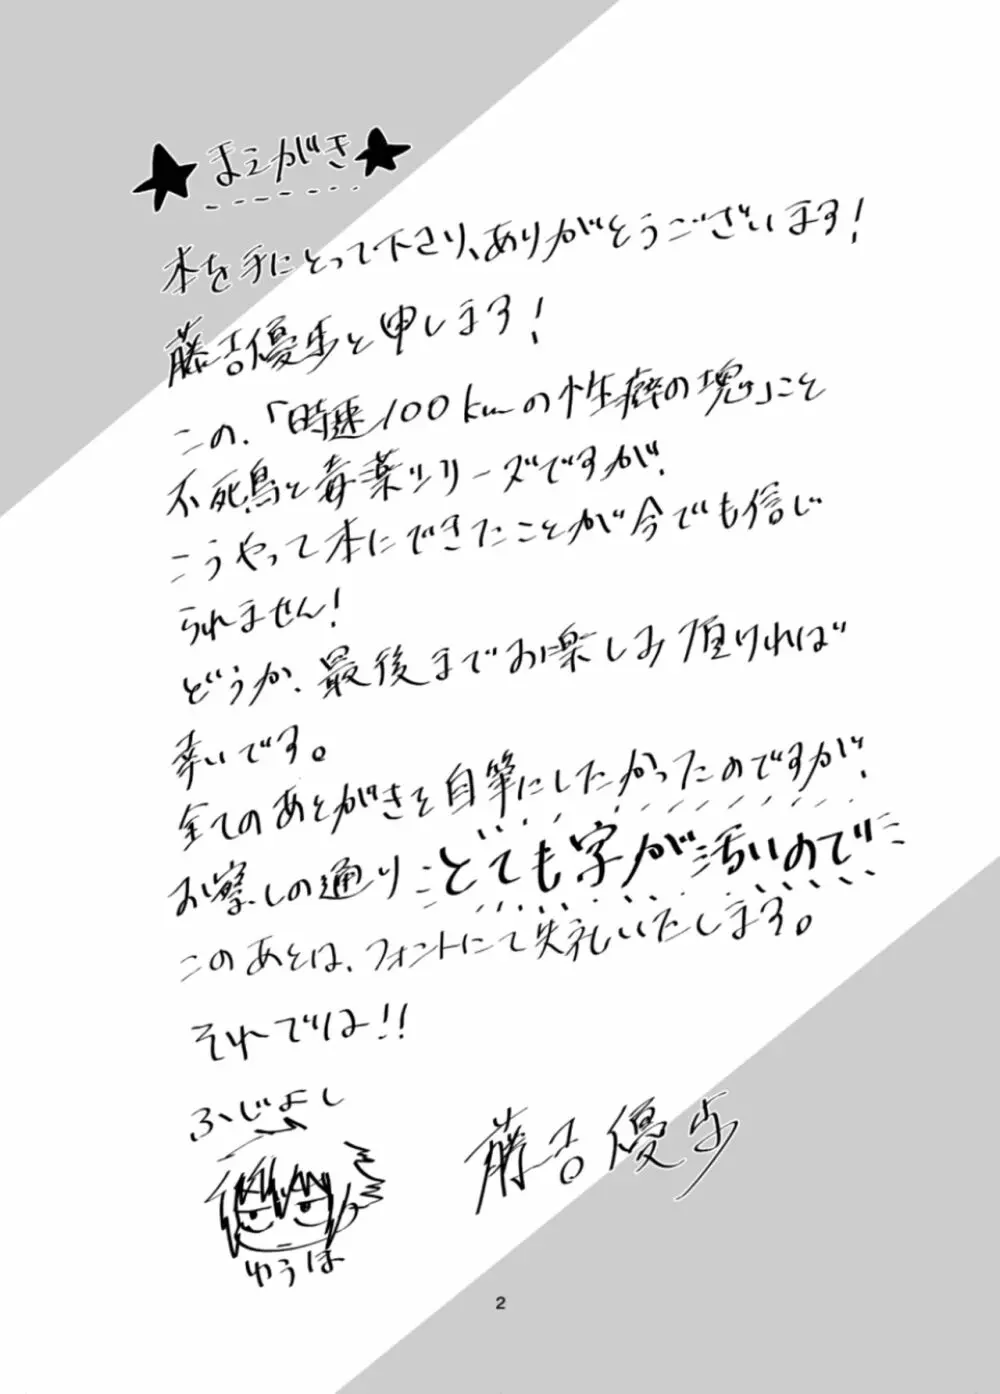 ★まえがき★
本を手にとって下さり、ありがとうございます!
藤吉優歩と申します!
この、「時速100kmの性癖の塊」こと
不死鳥と毒薬シリーズですが、
こうやって本にできたことが今でも信じ
られません!
どうか、最後までお楽しみ頂ければ
幸いです。
全てのあとがきを自筆にしたかったのですが、
お察しの通りとても字が汚いので
このあとは、フォントにて失礼いたします。
それでは!!
ふじよし
ゆうほ
藤吉優歩
2